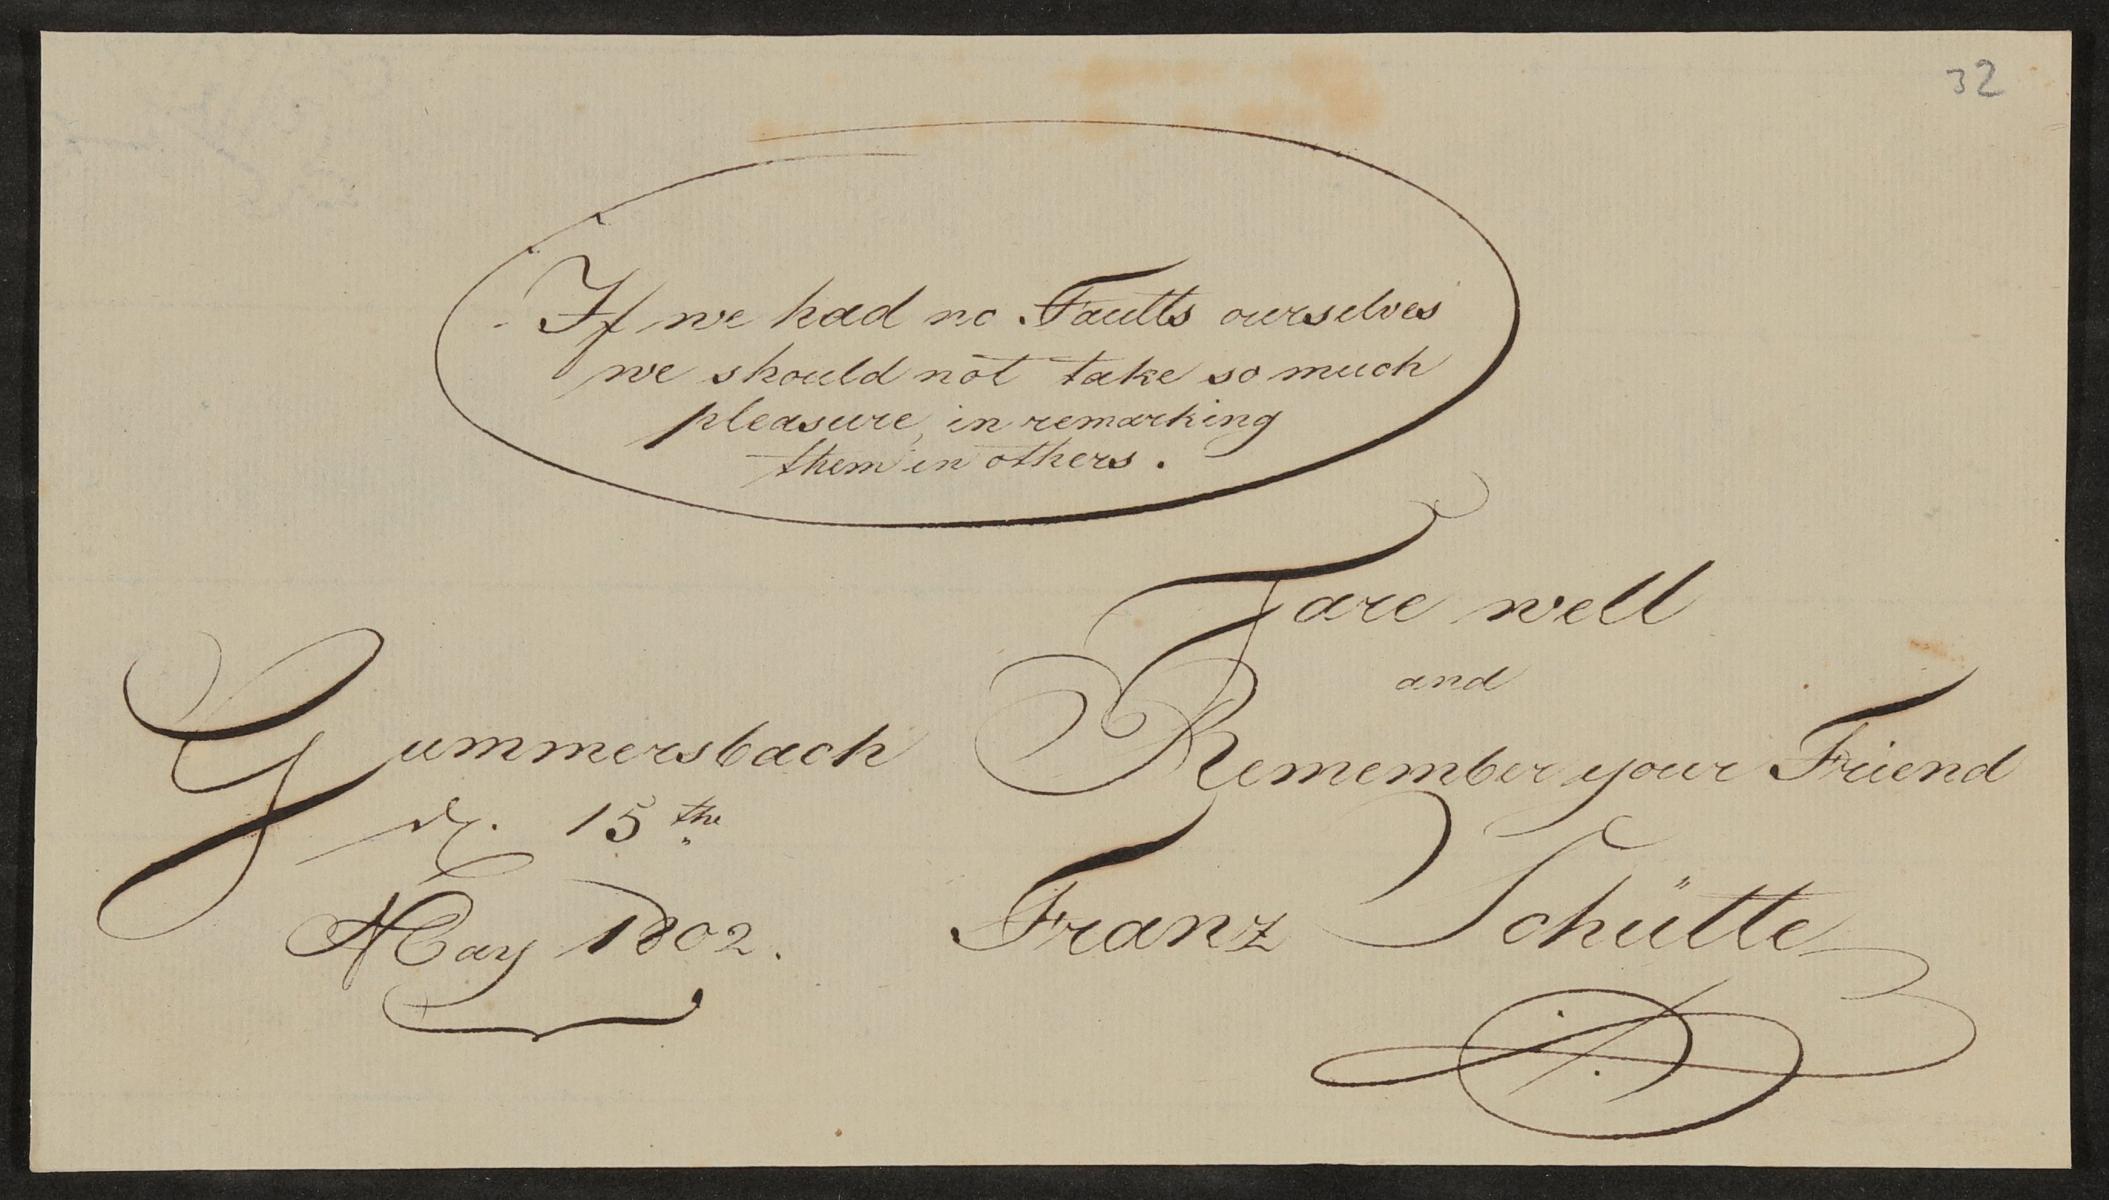 32
If we had no Faults ourselves
we should not take so much
pleasure, in remarking
them in others.
Fare well
and
Remember your Friend
Franz Schütte
Gummersbach
d. 15the
May 1802.